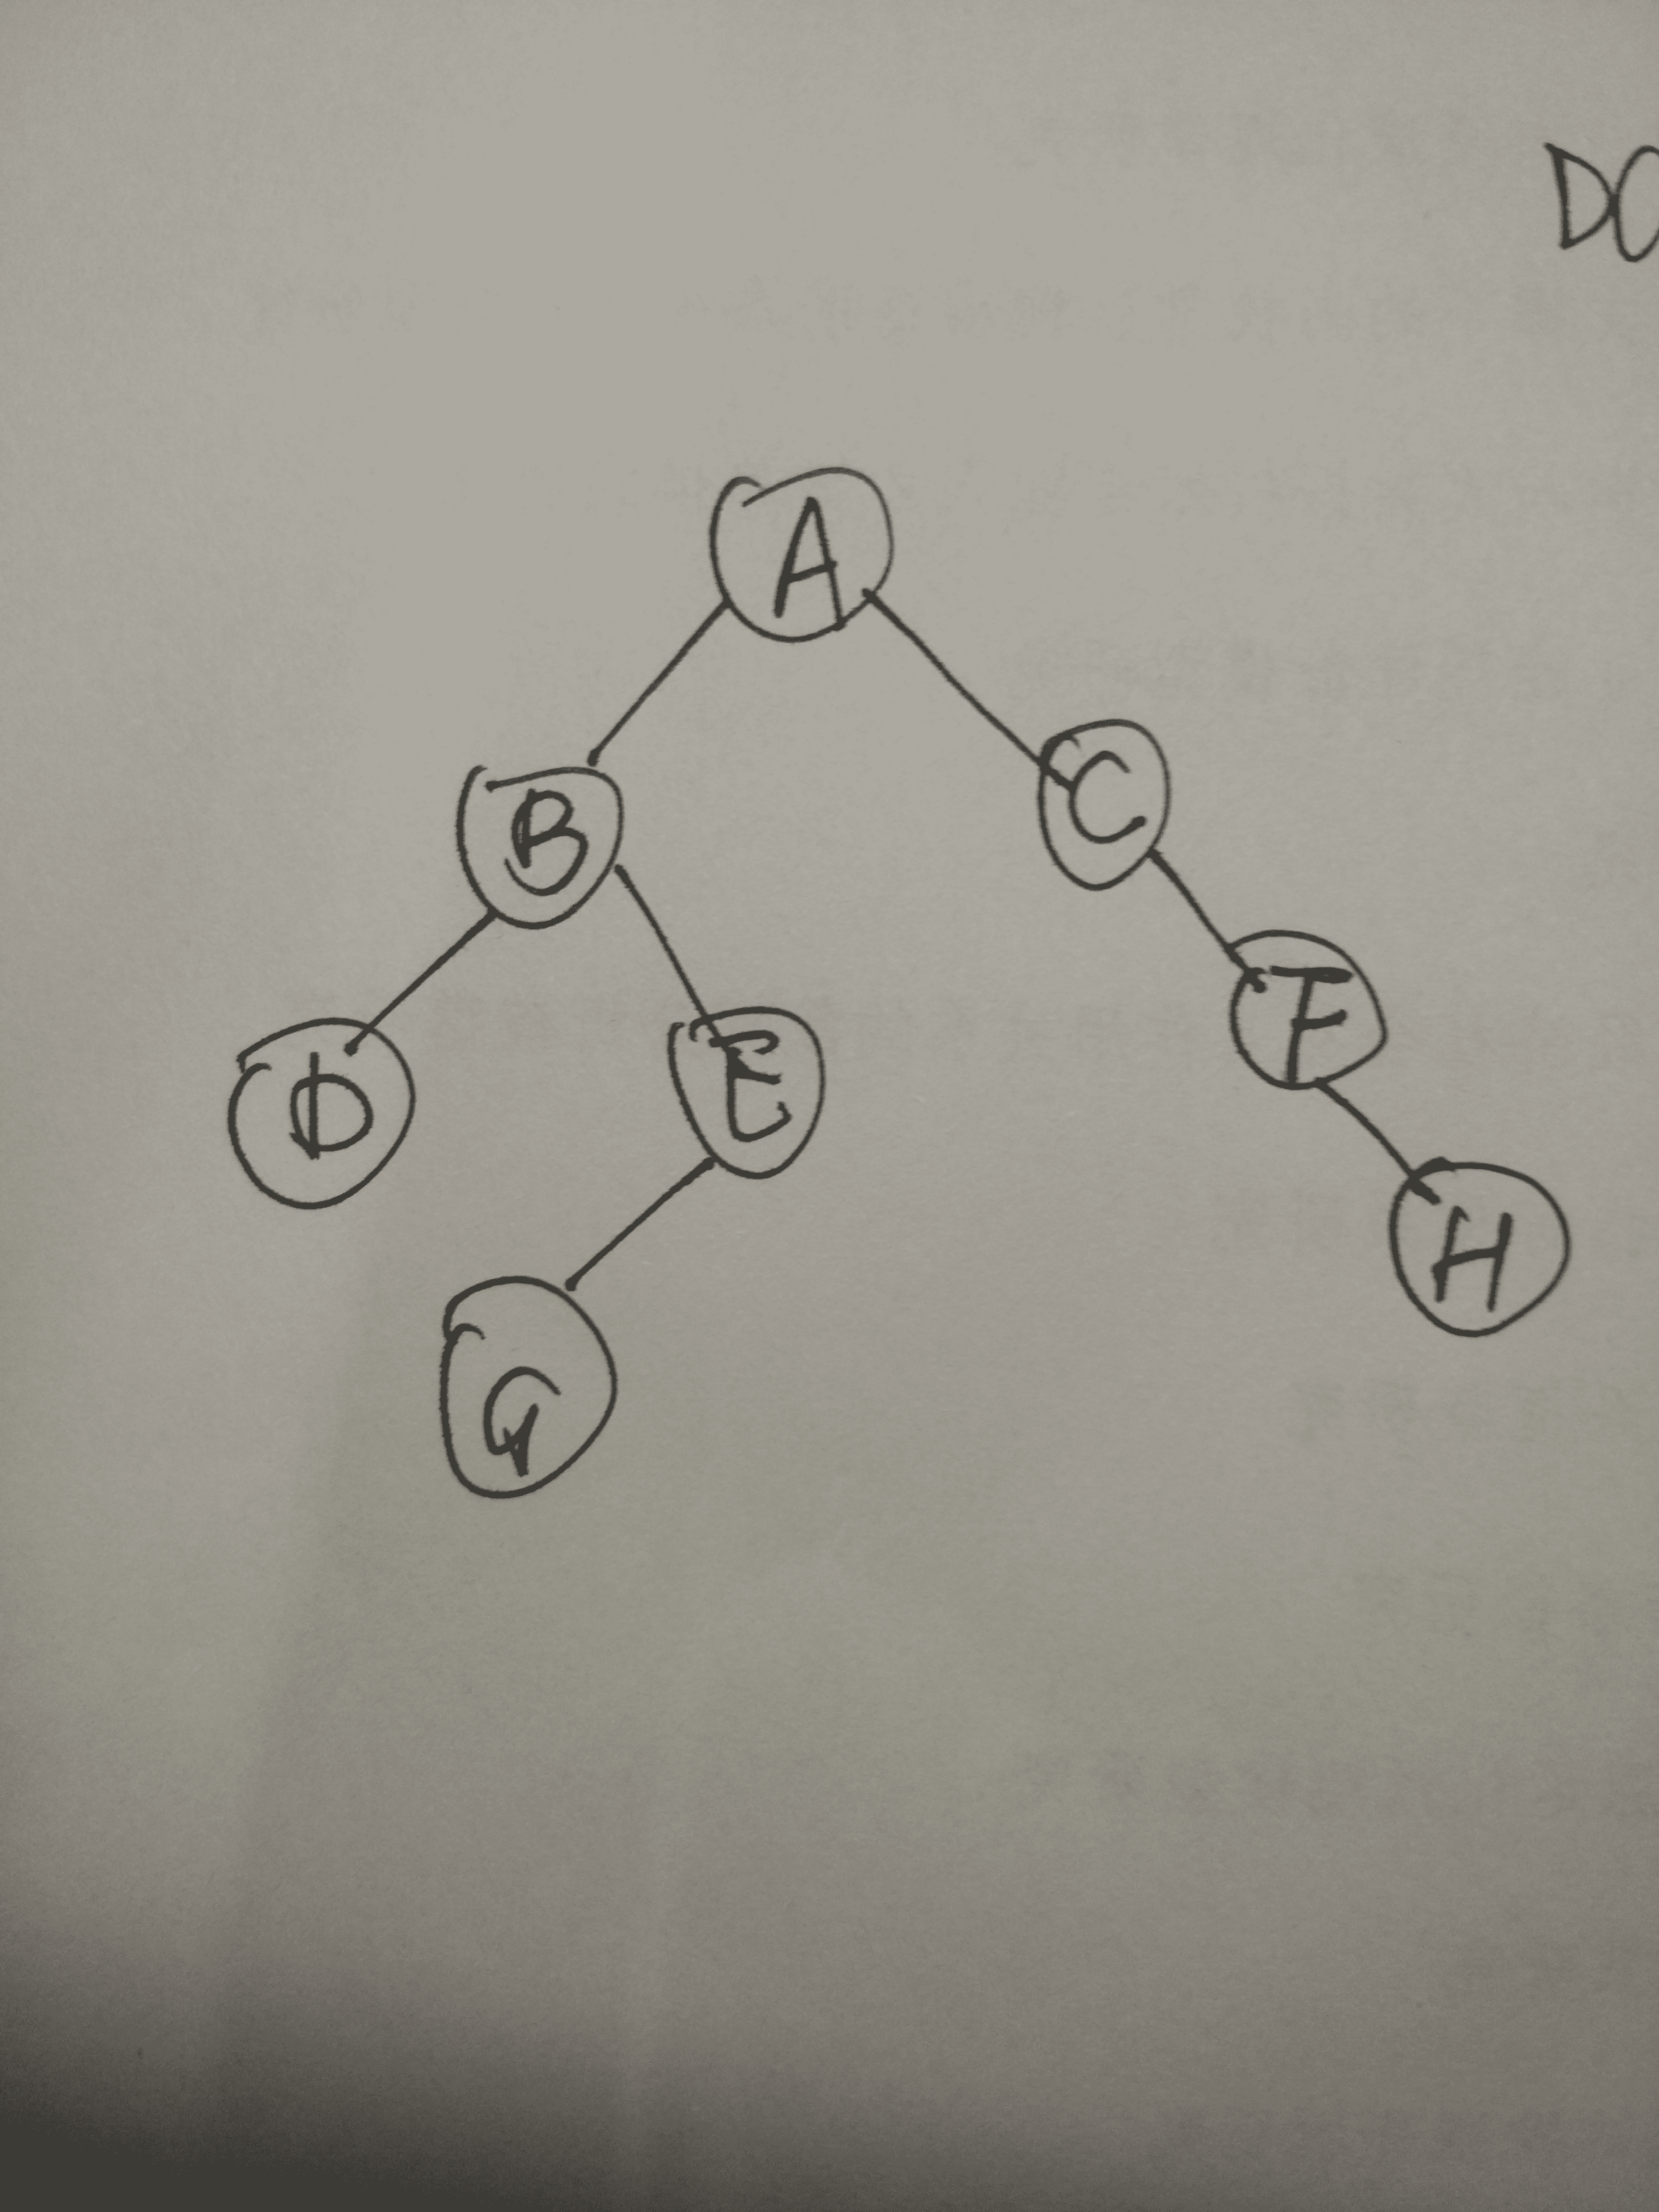 DO
A
B C
D E F
G H